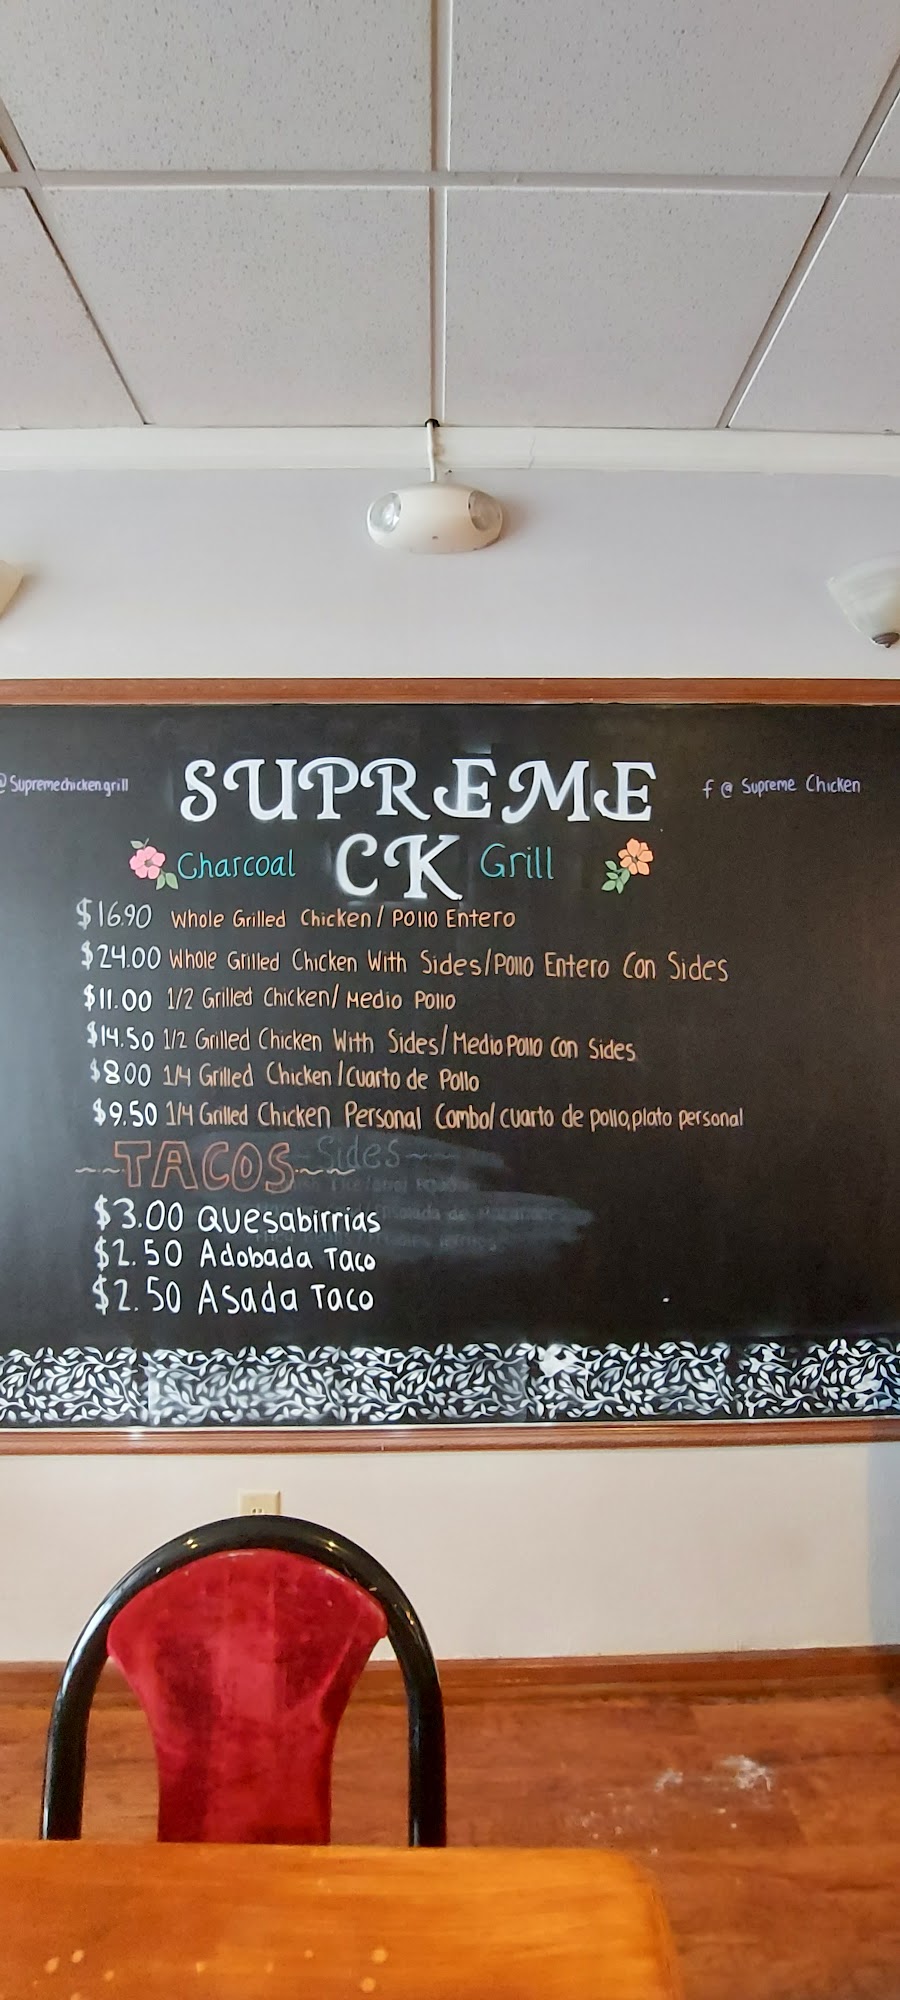 @Supremechicken.grill
SUPREME
f @ Supreme Chicken
Charcoal CK Grill
$16.90 Whole Grilled Chicken / Pollo Entero
$24.00 Whole Grilled Chicken With Sides/Pollo Entero Con Sides
$11.00 1/2 Grilled Chicken/ Medio Pollo
$14.50 1/2 Grilled Chicken With Sides/ Medio Pollo Con Sides
$8.00 1/4 Grilled Chicken / Cuarto de Pollo
$9.50 1/4 Grilled Chicken Personal Combo/ cuarto de pollo, plato personal
~~TACOS~~ Sides~~
$3.00 Quesabirrias
$2.50 Adobada Taco
$2.50 Asada Taco